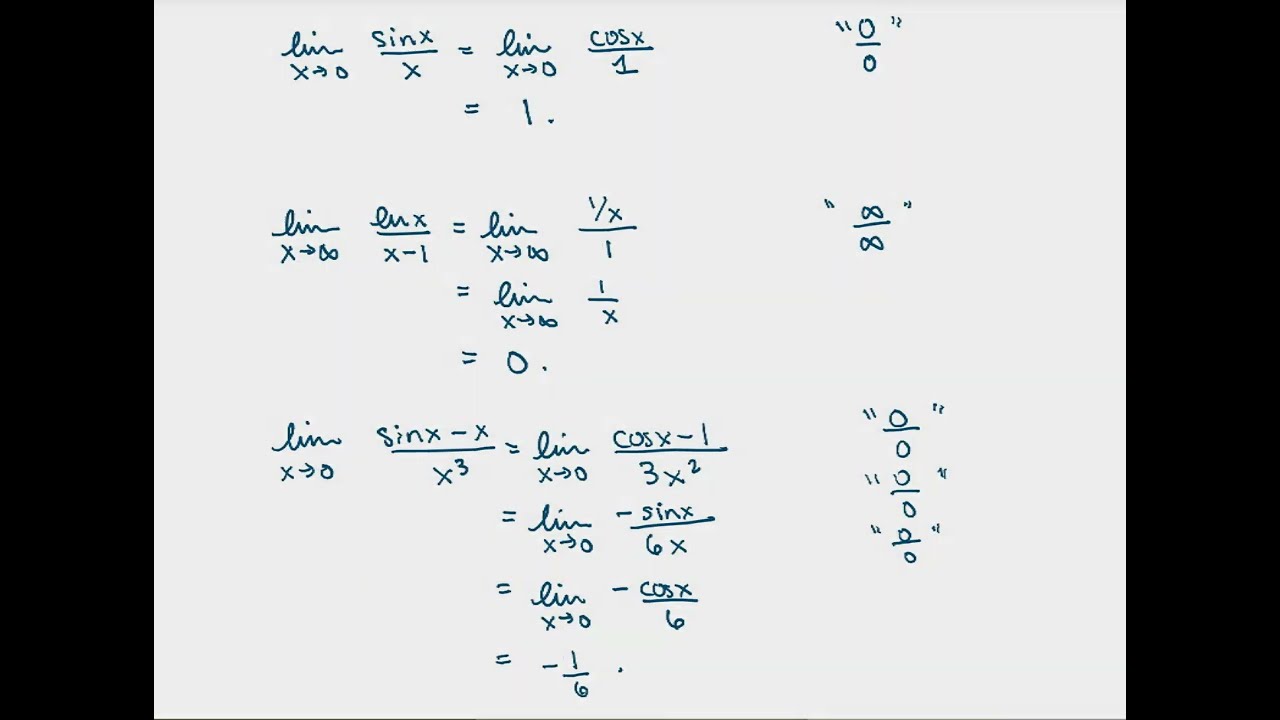 lim x→0 sinx/x = lim x→0 cosx/1 "0/0"
= 1.
lim x→∞ lnx/x-1 = lim x→∞ 1/x/1 " ∞/∞ "
= lim x→∞ 1/x
= 0.
lim x→0 sinx-x/x³ = lim x→0 cosx-1/3x² "0/0"
= lim x→0 -sinx/6x "0/0"
= lim x→0 -cosx/6 "0/0"
= -1/6.